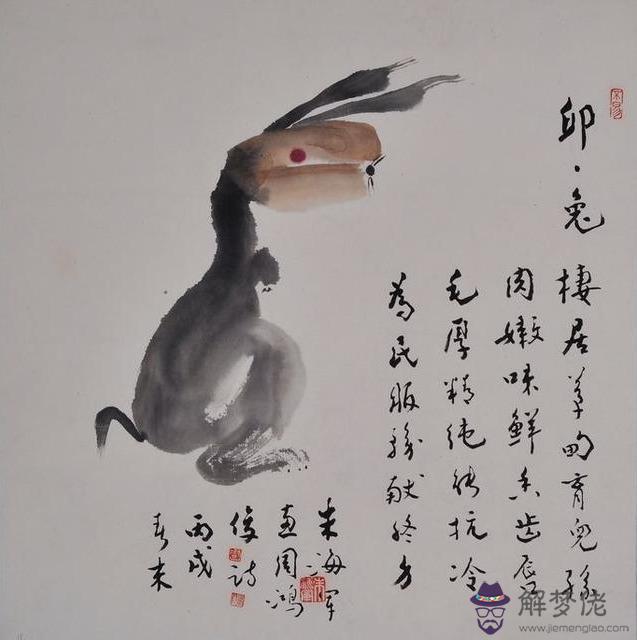 卯、兔
棲居草甸育兒孫
肉嫩味鮮香齒唇
毛厚精純能抗冷
為民服務献終身
朱海军
画周鴻
俊诗
丙戌
春末
解梦佬
www.jiemenglao.com